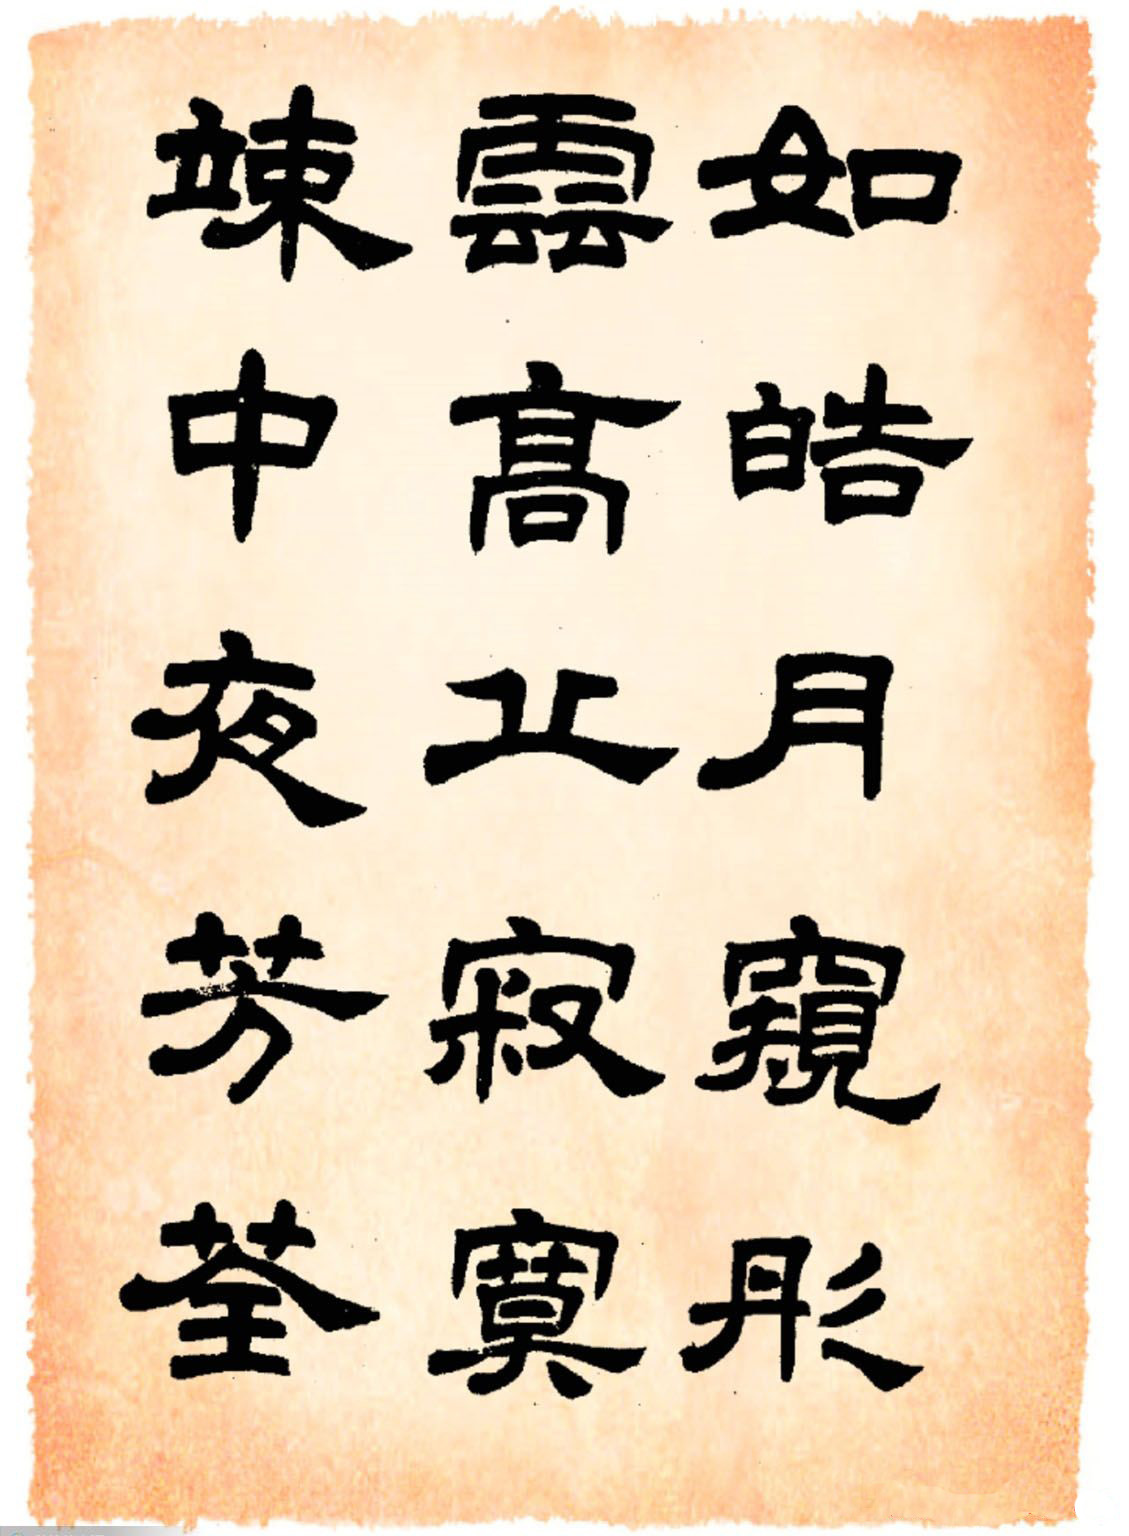 如皓月窺彤
雲高止寂寞
竦中夜芳荃